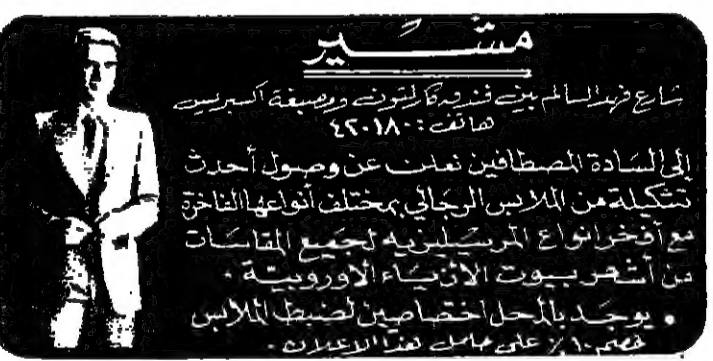 مشير
شارع فهد السالم بين فندق كارلتون ومصبغة اكسبريس
هاتف: ٤٢٠١٨٠
إلى السادة المصطافين نعلن عن وصول أحدث
تشكيلة من الملابس الرجالي بمختلف أنواعها الفاخرة
مع أفخر انواع المرسيليزيه لجميع المقاسات
من أشهر بيوت الأزياء الأوروبية .
• يوجد بالمحل اختصاصين لضبط الملابس
خصم ١٠٪ على حامل هذا الاعلان .